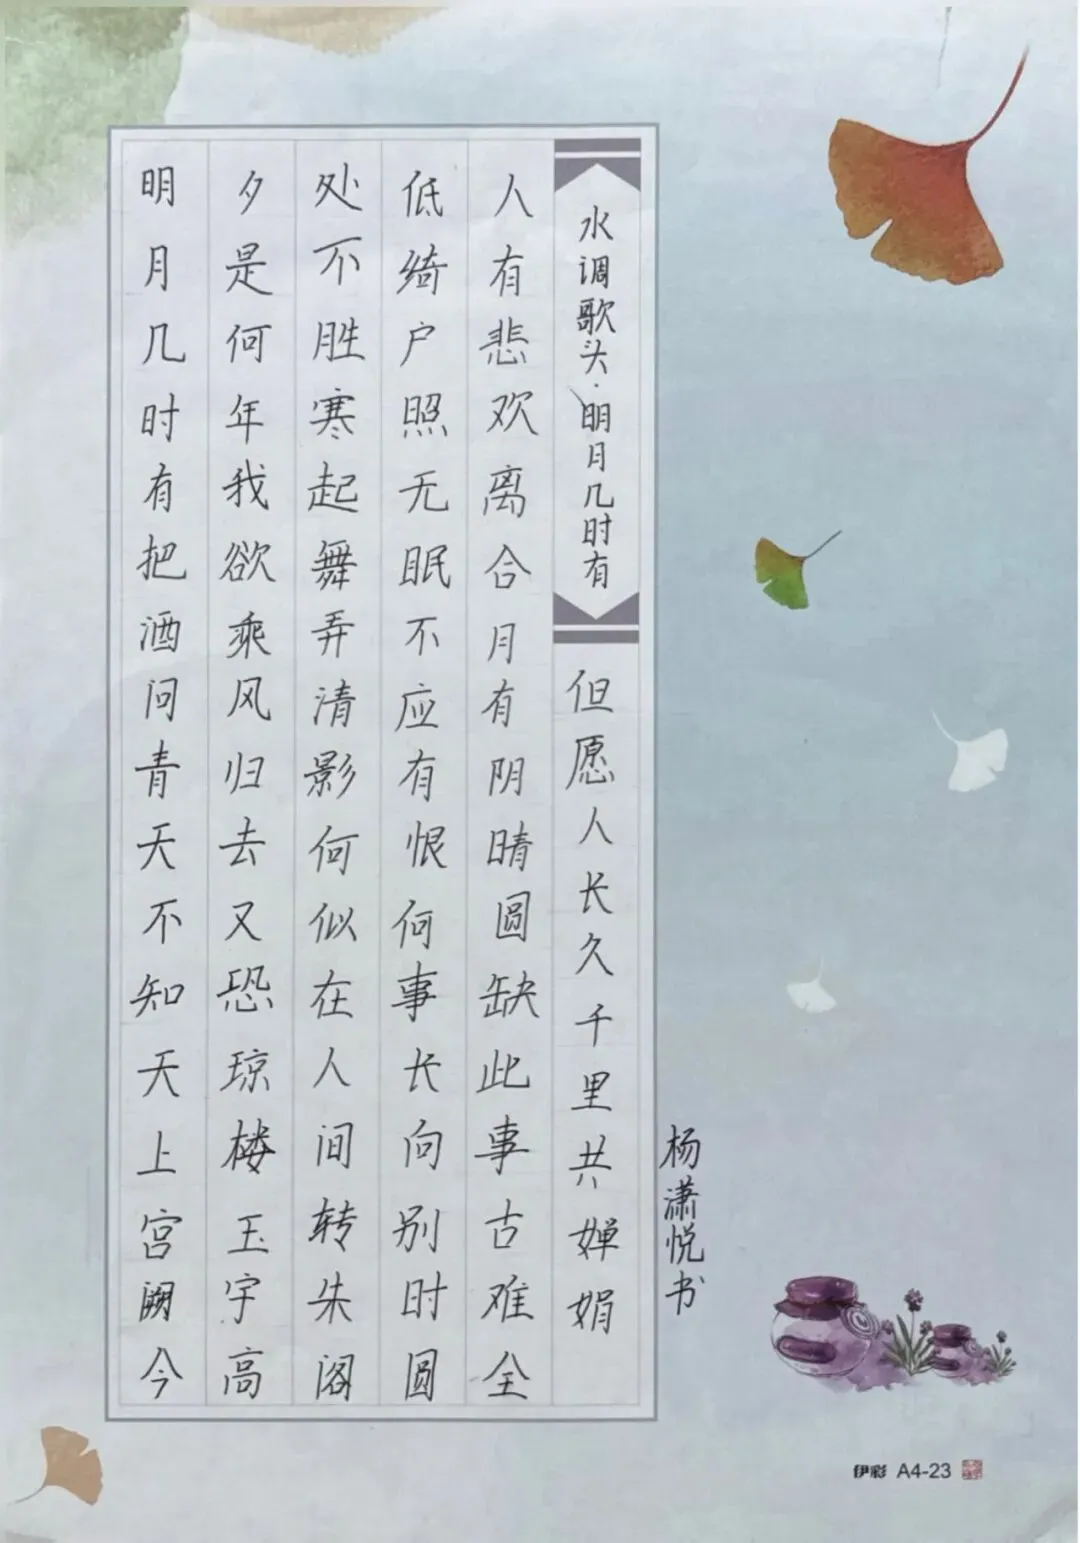 明月几时有把酒问青天不知天上宫阙今
夕是何年我欲乘风归去又恐琼楼玉宇高
处不胜寒起舞弄清影何似在人间转朱阁
低绮户照无眠不应有恨何事长向别时圆
人有悲欢离合月有阴晴圆缺此事古难全
水调歌头·明月几时有
但愿人长久千里共婵娟
杨潇悦书
伊彩 A4-23